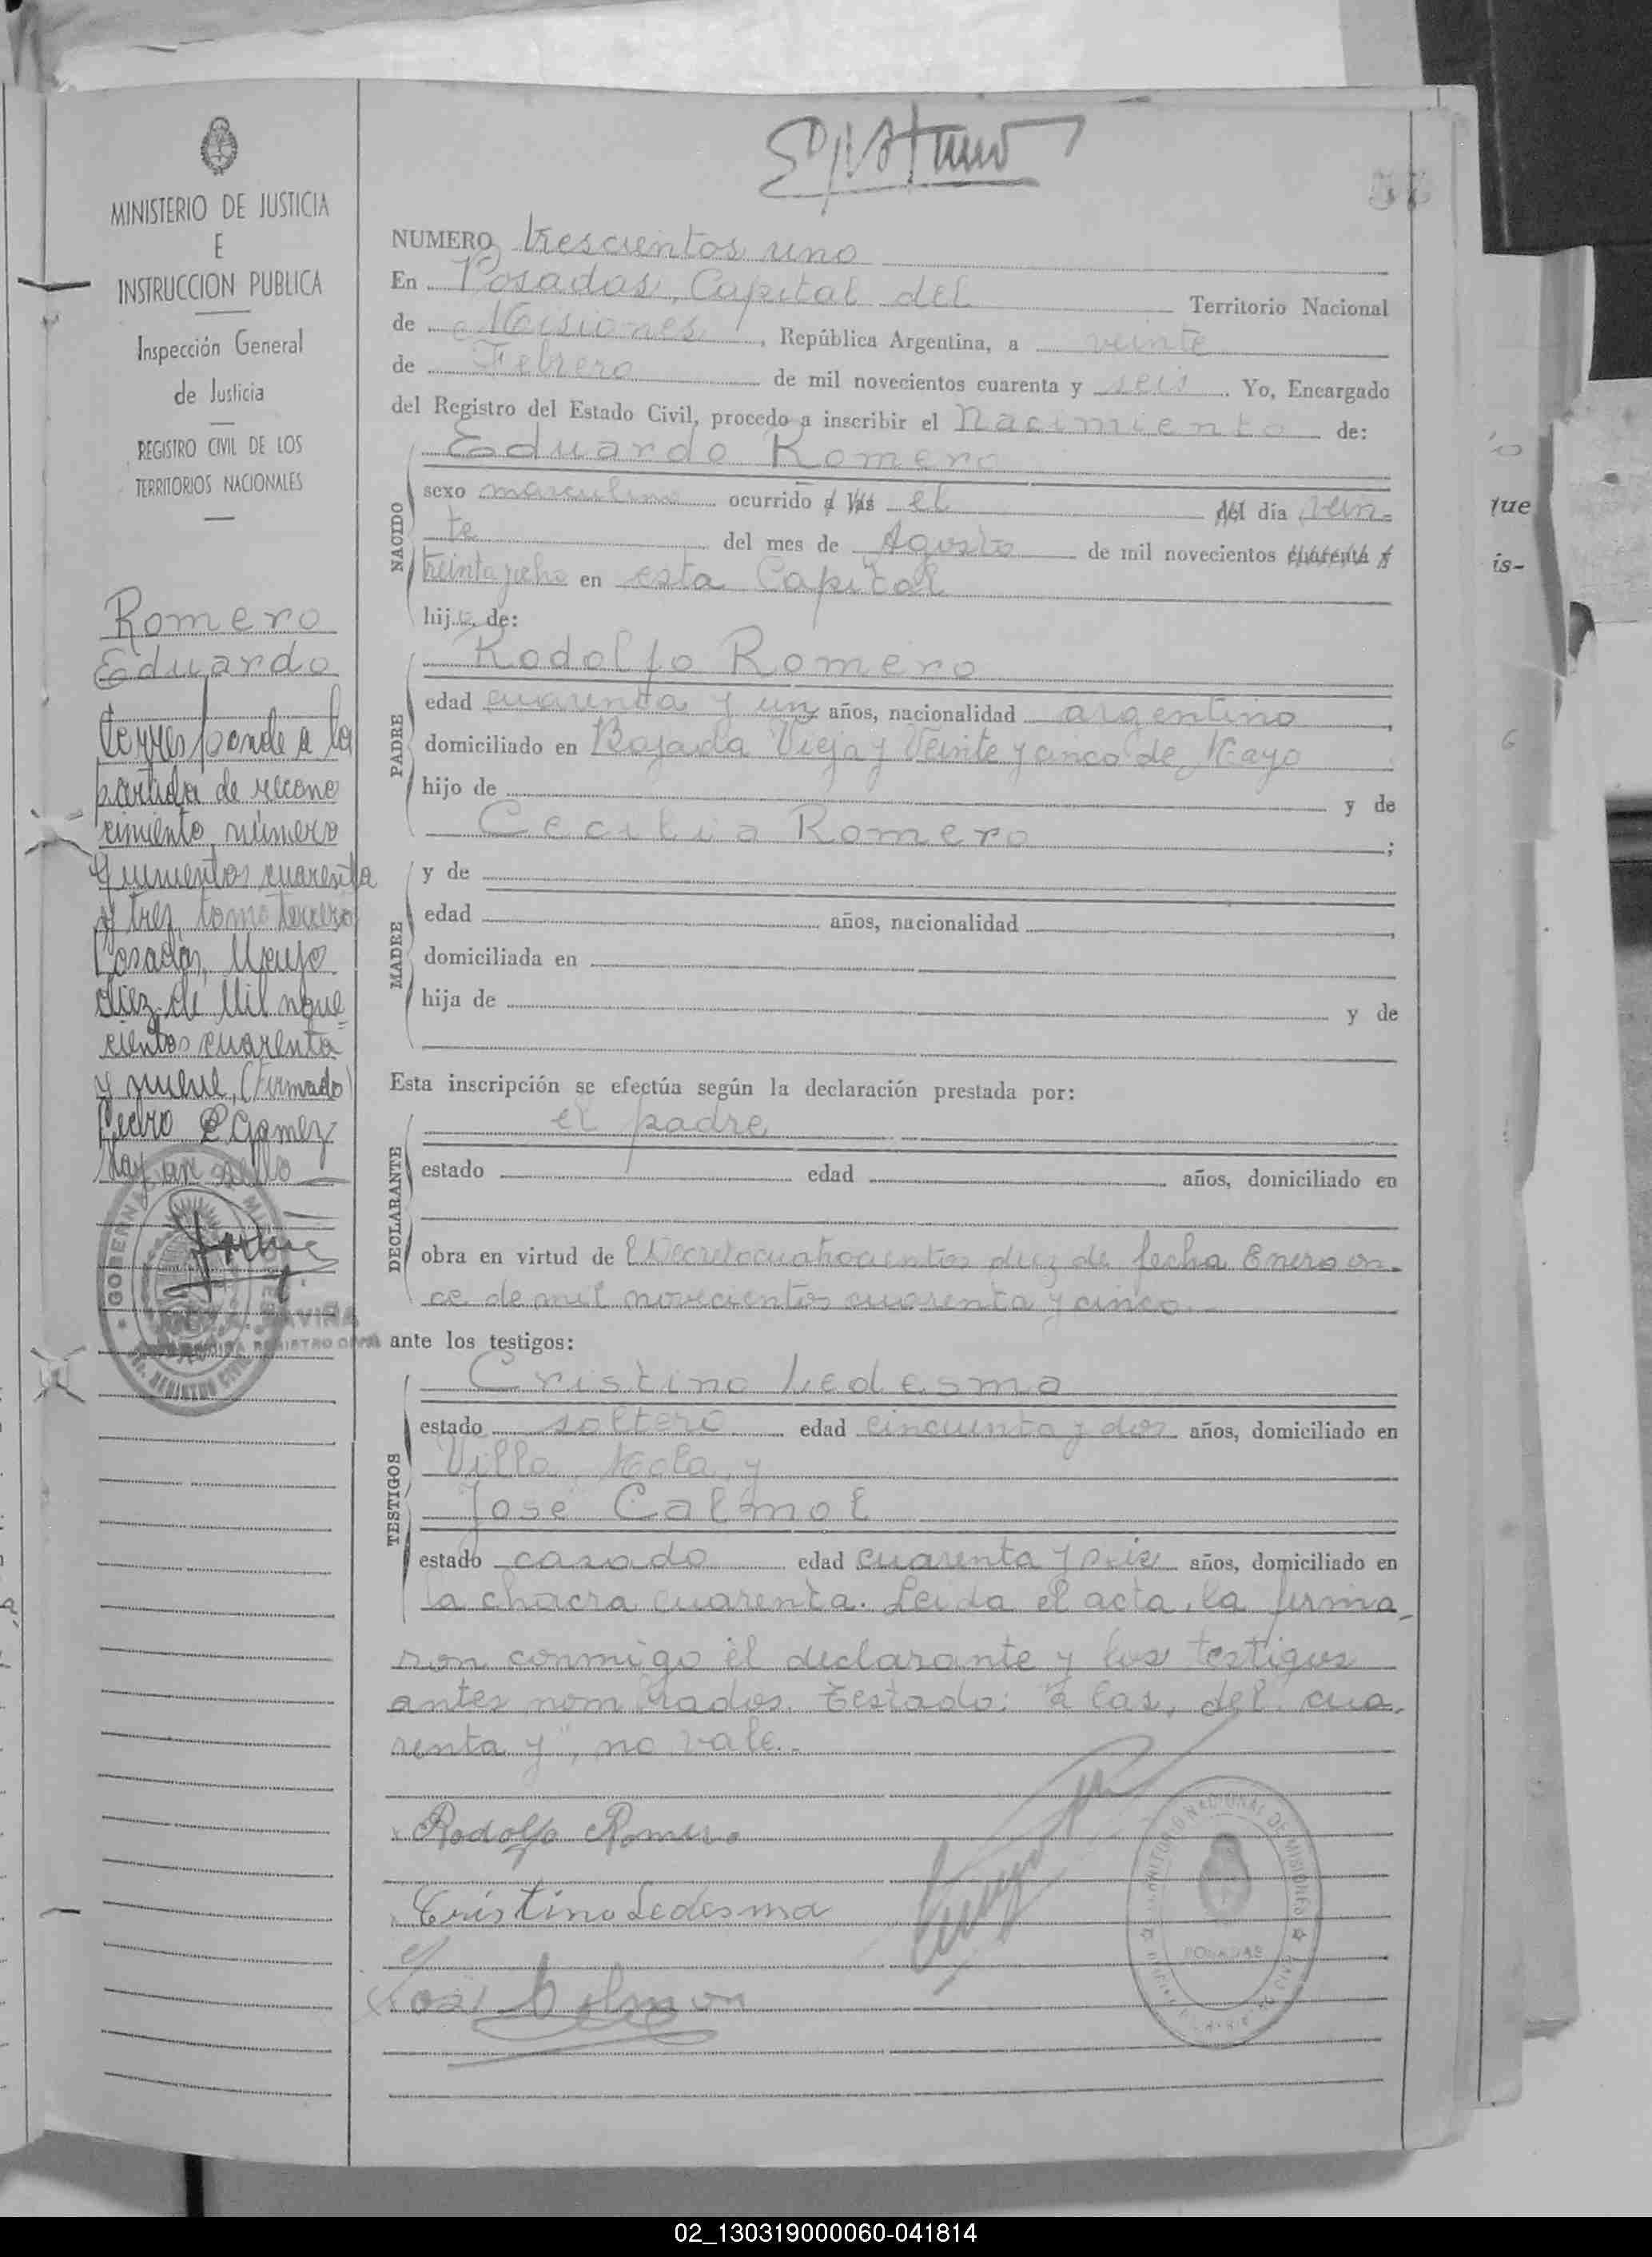 MINISTERIO DE JUSTICIA
E
INSTRUCCION PUBLICA
Inspección General
de Justicia
REGISTRO CIVIL DE LOS
TERRITORIOS NACIONALES
Romero
Eduardo
Corresponde a la
partida de recono
cimiento número
Quinientos cuarenta
y tres tomo tercero
Posadas, Mayo
diez de Mil nove
cientos cuarenta
y nueve, (firmado)
Pedro Gamez
Hay un sello
NUMERO trescientos uno
En Posadas, Capital del Territorio Nacional
de Misiones, República Argentina, a veinte
de Febrero de mil novecientos cuarenta y seis. Yo, Encargado
del Registro del Estado Civil, procedo a inscribir el Nacimiento de:
NACIDO
Eduardo Romero
sexo masculino ocurrido a las el del día vein-
te del mes de Agosto de mil novecientos cuarenta y
treinta y ocho en esta Capital
hijo de:
PADRE
Rodolfo Romero
edad cuarenta y un años, nacionalidad argentino,
domiciliado en Bajada Vieja y Veinte y cinco de Mayo
hijo de y de
Cecilia Romero;
MADRE
y de
edad años, nacionalidad
domiciliada en
hija de y de
Esta inscripción se efectúa según la declaración prestada por:
DECLARANTE
el padre
estado edad años, domiciliado en
obra en virtud de Decreto cuatrocientos diez de fecha Enero on-
ce de mil novecientos cuarenta y cinco
ante los testigos:
TESTIGOS
Cristino Ledesma
estado soltero edad cincuenta y dos años, domiciliado en
Villa Mola y
José Calmol
estado casado edad cuarenta y seis años, domiciliado en
la chacra cuarenta. Leida el acta, la firma-
ron conmigo el declarante y los testigos
antes nombrados. Testado: "a las, del cua-
renta y", no vale.-
Rodolfo Romero
Cristino Ledesma
José
POSADAS
tue
is-
02_130319000060-041814